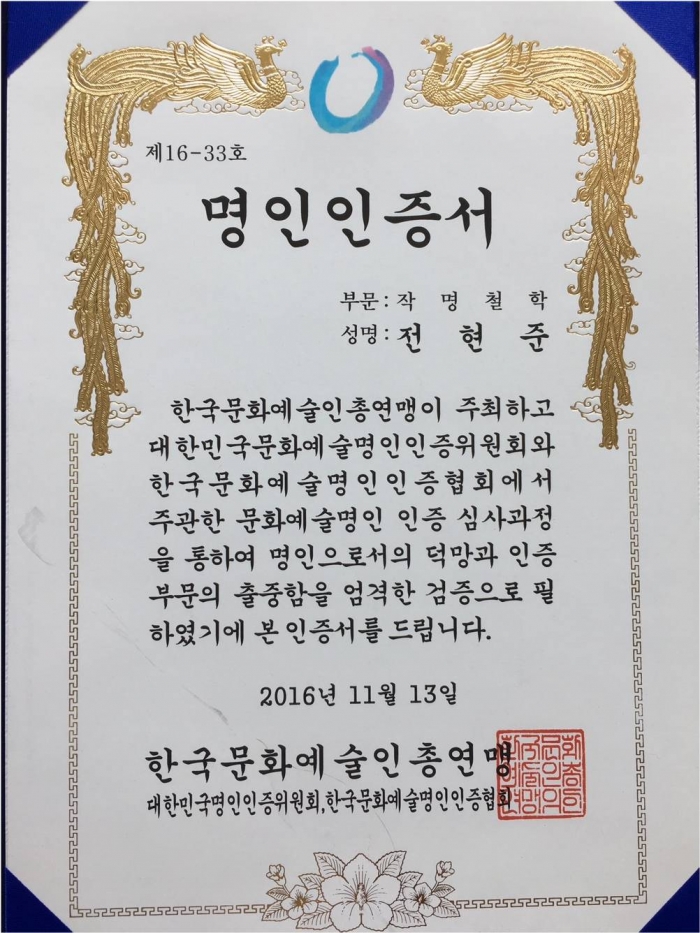 제16-33호
명인인증서
부문 : 작 명 철 학
성명 : 전 현 준
한국문화예술인총연맹이 주최하고
대한민국문화예술명인인증위원회와
한국문화예술명인인증협회에서
주관한 문화예술명인 인증 심사과정
을 통하여 명인으로서의 덕망과 인증
부문의 출중함을 엄격한 검증으로 필
하였기에 본 인증서를 드립니다.
2016년 11월 13일
한국문화예술인총연맹
대한민국명인인증위원회,한국문화예술명인인증협회